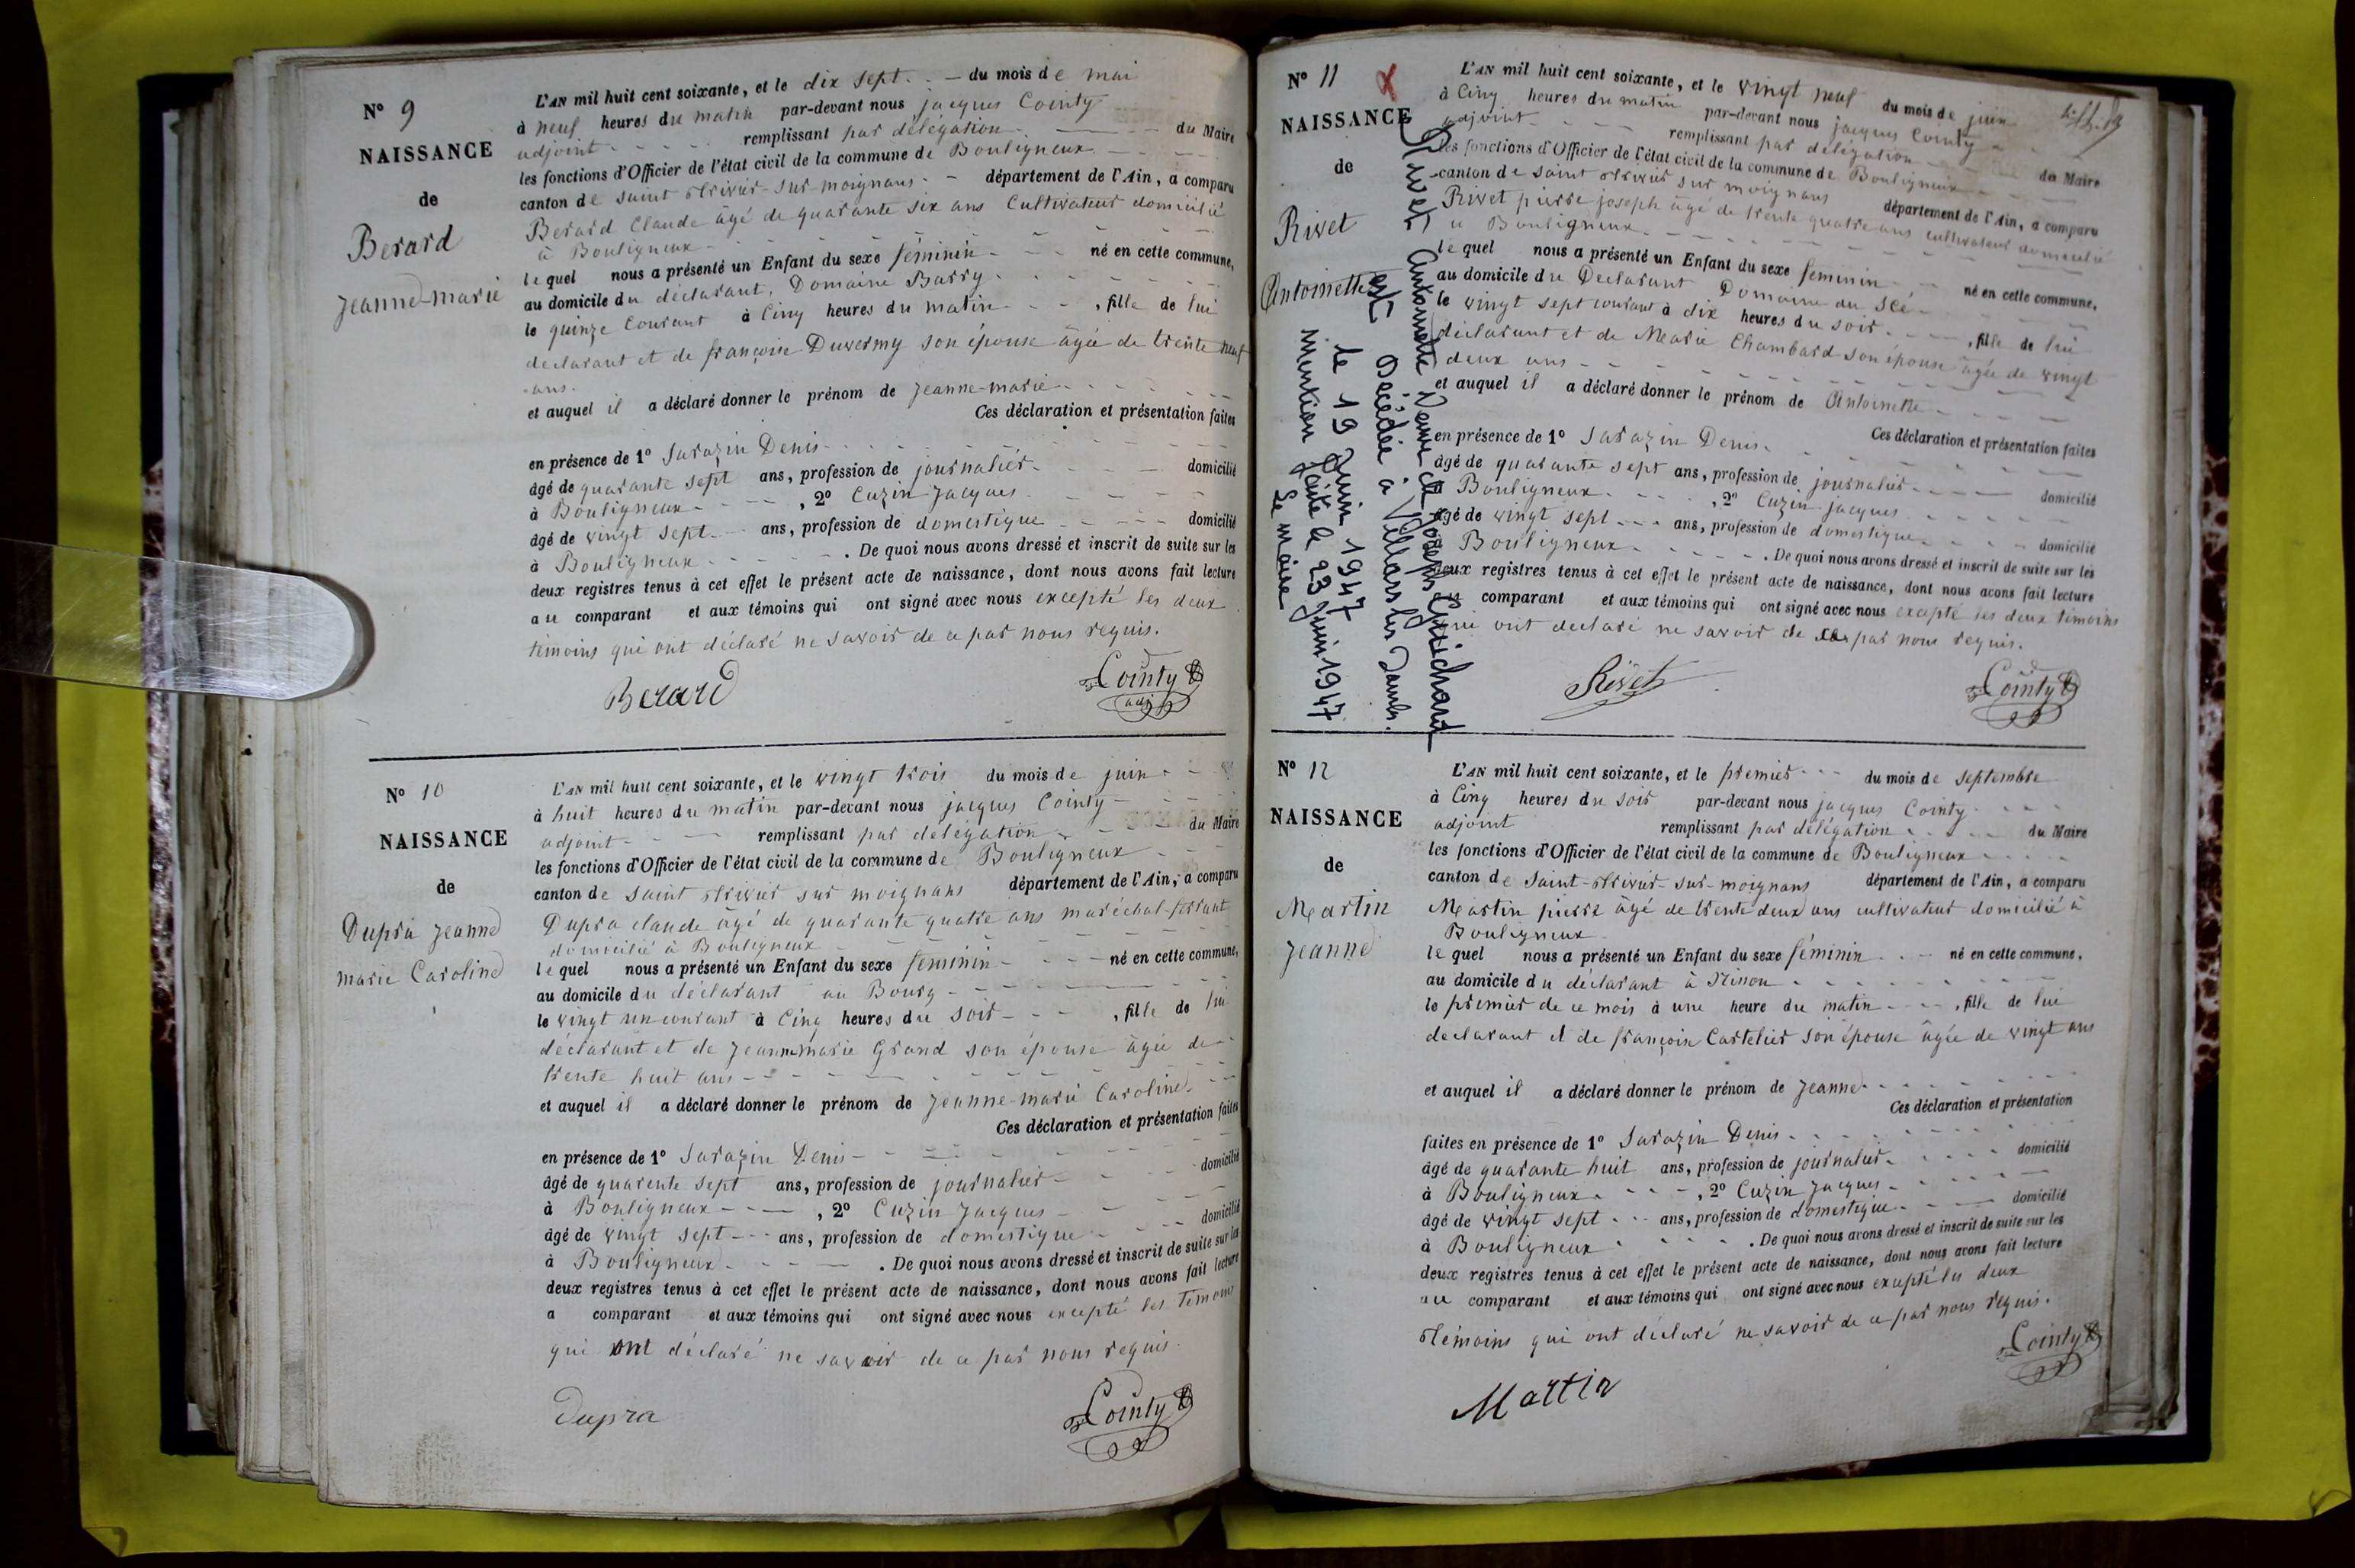 N° 9
NAISSANCE
de
Berard
Jeanne-marie
L'AN mil huit cent soixante, et le dix sept - du mois de mai
à neuf heures du matin par-devant nous jacques Cointy
adjoint remplissant par délégation du Maire
les fonctions d'Officier de l'état civil de la commune de Bouligneux
canton de saint trivier-sur-moignans département de l'Ain, a comparu
Berard Claude âgé de quarante six ans Cultivateur domicilié
à Bouligneux
lequel nous a présenté un Enfant du sexe féminin né en cette commune,
au domicile du déclarant, Domaine Barry
le quinze Courant à Cinq heures du matin, fille de lui
declarant et de françoise Duvermy son épouse âgée de trente neuf
ans.
et auquel il a déclaré donner le prénom de Jeanne-marie
Ces déclaration et présentation faites
en présence de 1° Sarazin Denis
âgé de quarante sept ans, profession de journalier domicilié
à Bouligneux, 2° Cuzin Jacques
âgé de vingt sept ans, profession de domestique domicilié
à Bouligneux. De quoi nous avons dressé et inscrit de suite sur les
deux registres tenus à cet effet le présent acte de naissance, dont nous avons fait lecture
au comparant et aux témoins qui ont signé avec nous excepté les deux
témoins qui ont déclaré ne savoir de ce par nous requis.
Berard Cointy
adj
N° 10
NAISSANCE
de
Dupra Jeanne
marie Caroline
L'AN mil huit cent soixante, et le vingt trois du mois de juin
à huit heures du matin par-devant nous jacques Cointy
adjoint remplissant par délégation du Maire
les fonctions d'Officier de l'état civil de la commune de Bouligneux
canton de saint trivier sur moignans département de l'Ain, a comparu
Dupra claude âgé de quarante quatre ans maréchal-ferrant
domicilié à Bouligneux
lequel nous a présenté un Enfant du sexe féminin né en cette commune,
au domicile du déclarant au Bourg
le vingt un courant à Cinq heures du soir, fille de lui
déclarant et de Jeanne marie Grand son épouse âgée de
trente huit ans
et auquel il a déclaré donner le prénom de Jeanne-marie Caroline
Ces déclaration et présentation faites
en présence de 1° Sarazin Denis
âgé de quarente sept ans, profession de journalier domicilié
à Bouligneux, 2° Cuzin Jacques
âgé de vingt sept ans, profession de domestique domicilié
à Bouligneux. De quoi nous avons dressé et inscrit de suite sur les
deux registres tenus à cet effet le présent acte de naissance, dont nous avons fait lecture
a comparant et aux témoins qui ont signé avec nous excepté les témoins
qui ont déclaré ne savoir de ce par nous requis.
Dupra Cointy
N° 11
NAISSANCE
de
Rivet
Antoinette
Rivet Antoinette Veuve de Joseph Guichard
est Décédée à Villars les Dombes.
le 19 Juin 1947
mention faite le 23 juin 1947
Le maire
L'AN mil huit cent soixante, et le vingt neuf du mois de juin
à Cinq heures du matin par-devant nous jacques Cointy
adjoint remplissant par délégation du Maire
les fonctions d'Officier de l'état civil de la commune de Bouligneux
canton de saint trivier sur moignans département de l'Ain, a comparu
Rivet pierre joseph âgé de trente quatre ans cultivateur domicilié
à Bouligneux
lequel nous a présenté un Enfant du sexe féminin né en cette commune,
au domicile du Declarant Domaine du Scé
le vingt sept courant à dix heures du soir, fille de lui
déclarant et de Marie Chambard son épouse âgée de vingt
deux ans
et auquel il a déclaré donner le prénom de Antoinette
Ces déclaration et présentation faites
en présence de 1° Sarazin Denis.
âgé de quarante sept ans, profession de journalier domicilié
Bouligneux, 2° Cuzin jacques
âgé de vingt sept ans, profession de domestique domicilié
Bouligneux. De quoi nous avons dressé et inscrit de suite sur les
deux registres tenus à cet effet le présent acte de naissance, dont nous avons fait lecture
comparant et aux témoins qui ont signé avec nous excepté les deux témoins
qui ont declaré ne savoir de par nous requis.
Rivet Cointy
N° 12
NAISSANCE
de
Martin
Jeanne
L'AN mil huit cent soixante, et le premier du mois de septembre
à Cinq heures du soir par-devant nous jacques Cointy
adjoint remplissant par délégation du Maire
les fonctions d'Officier de l'état civil de la commune de Bouligneux
canton de Saint-trivier-sur-moignans département de l'Ain, a comparu
Martin pierre âgé de trente deux ans cultivateur domicilié à
Bouligneux
lequel nous a présenté un Enfant du sexe féminin né en cette commune,
au domicile du déclarant à
le premier de ce mois à une heure du matin, fille de lui
declarant et de françoise Cartelier son épouse âgée de vingt ans
et auquel il a déclaré donner le prénom de Jeanne
Ces déclaration et présentation
faites en présence de 1° Sarazin Denis
âgé de quarante huit ans, profession de journalier domicilié
à Bouligneux, 2° Cuzin Jacques
âgé de vingt sept ans, profession de domestique domicilié
à Bouligneux. De quoi nous avons dressé et inscrit de suite sur les
deux registres tenus à cet effet le présent acte de naissance, dont nous avons fait lecture
au comparant et aux témoins qui ont signé avec nous excepté les deux
témoins qui ont déclaré ne savoir de ce par nous requis.
Martin Cointy